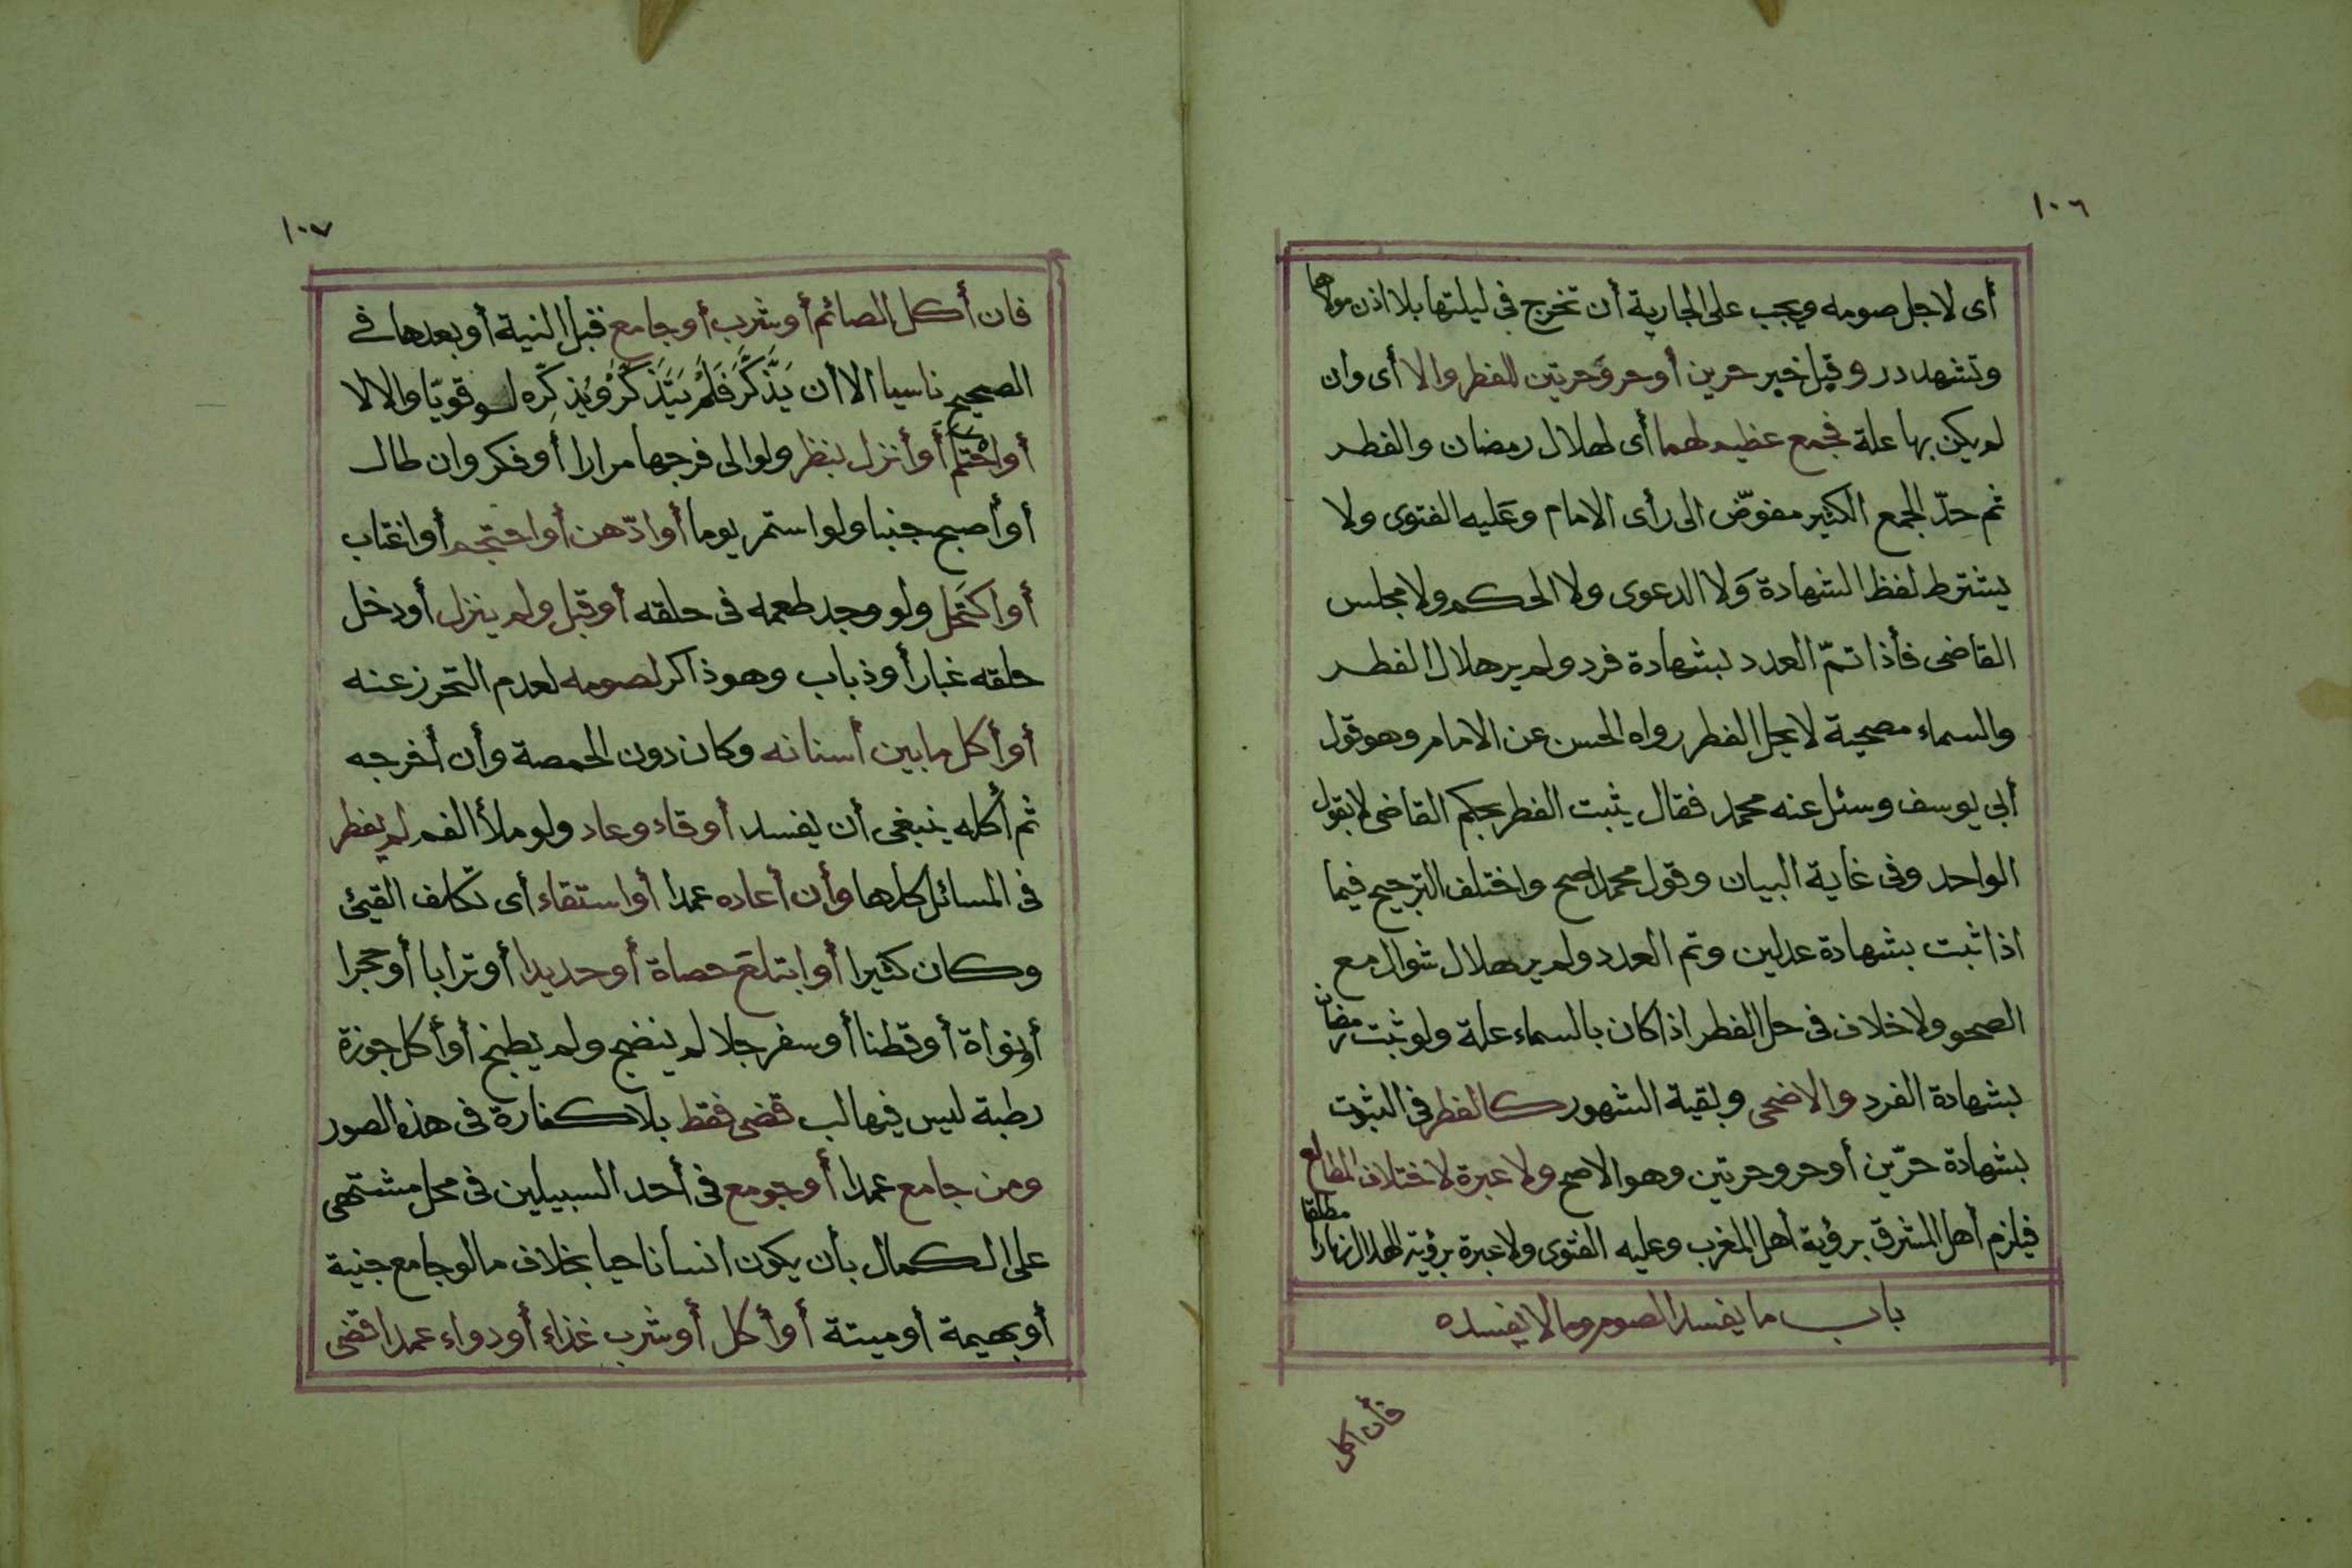 ١٠٦
أى لاجل صومه ويجب على الجارية أن تخرج فى ليلتها بلا اذن مولاها
وتشهد در وقبل خبر حرين أو حر وَحرتين للفطر والا أى وان
لم يكن بها علة فجمع عظيم لهما أى لهلال رمضان والفطر
ثم حدّ الجمع الكثير مفوّض الى رأى الامام وعَليه الفتوى ولا
يشترط لفظ الشهادة وَلا الدعوى ولا الحكم ولا مجلس
القاضى فأذا تمّ العدد بشهادة فرد ولم ير هلال الفطر
والسماء مصحية لا يحل الفطر رواه الحسن عن الامام وهو قول
أبى يوسف وسئل عنه محمد فقال يثبت الفطر بحكم القاضى لا بقول
الواحد وفى غاية البيان وقول محمد اصح واختلف الترجيح فيما
اذا ثبت بشهادة عدلين وتم العدد ولم ير هلال شوال مع
الصحو ولا خلاف فى حل الفطر اذا كان بالسماء علة ولو ثبت رمضان
بشهادة الفرد والاضحى وبقية الشهور كالفطر فى الثبوت
بشهادة حرّين أو حر وحرتين وهو الاصح ولا عبرة لاختلاف المطالع
فيلزم أهل المشرق برؤية أهل المغرب وعليه الفتوى ولا عبرة برؤية الهلال نهارا مطلقا
باب ما يفسد الصوم وما لا يفسده
فأن اكل
١٠٧
فان أكل الصائم أو شرب أو جامع قبل النية أو بعدها فى
الصحيح ناسيا الا أن يَذَّكَّرَ فَلَمْ يَتَذَكَّرْ وَيُذكِّره لو قويّا والا لا
أو احْتلم أو أنزل بنظر ولو الى فرجها مرارا أو فكر وان طال
أو أصبح جنبا ولو استمر يوما أو ادّهن أو احتجم أو اغتاب
أو اكتَحل ولو وجد طعمه فى حلقه أو قبل ولم ينزل أو دخل
حلقه غبار أو ذباب وهو ذاكر لصومه لعدم التحرز عنه
أو أكل ما بين أسنانه وكان دون الحمصة وأن أخرجه
ثم أكله ينبغى أن يفسد أو قاء وعاد ولو ملأ الفم لم يفطر
فى المسائل كلها وأن أعاده عمدا أو استقاء أى تكلف القيئ
وكان كثيرا أو ابتلع حصاة أو حديدا أو ترابا أو حجرا
أو نواة أو قطنا أو سفرجلا لم ينضج ولم يطبخ أو أكل جوزة
رطبة ليس فيها لب قضى فقط بلا كفارة فى هذه الصور
ومن جامع عمدا أو جومع فى أحد السبيلين فى محل مشتهى
على الكمال بأن يكون انسانا حيا بخلاف ما لو جامع جنية
أو بهيمة أو ميتة أو أكل أو شرب غذاء أو دواء عمدا قضى